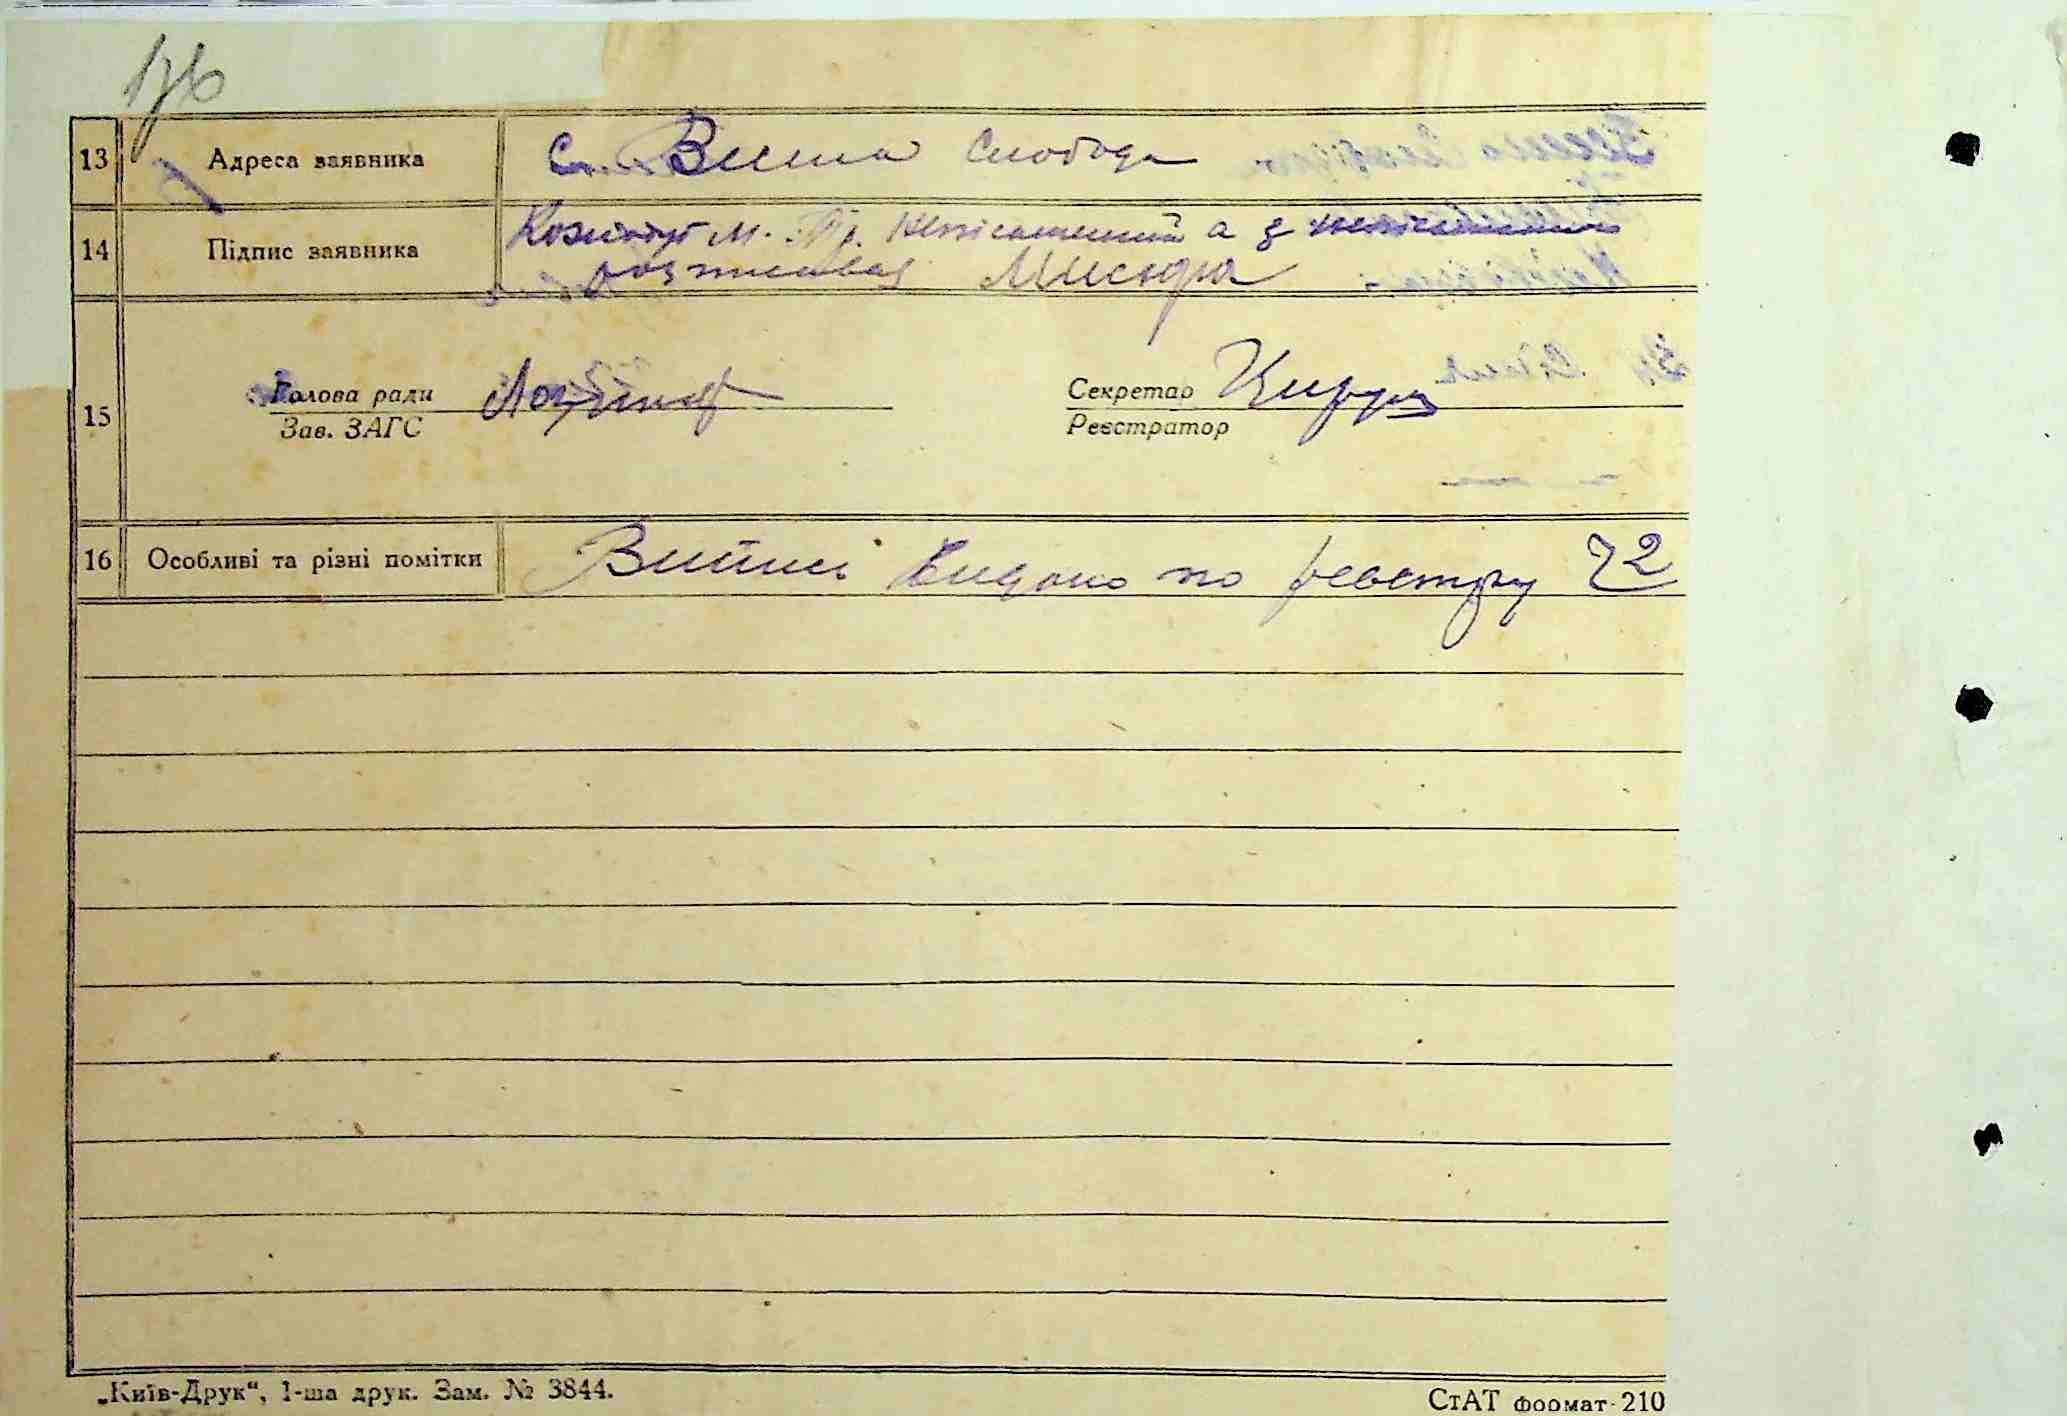 176
13 Адреса заявника С. Вища Слобода
14 Підпис заявника М. Пр. неписьменний а з
розписавсь Мисюра
15 Голова ради Секретар
Зав. ЗАГС Реєстратор
16 Особливі та різні помітки Витяг видано по реєстру 72
„Київ-Друк“, 1-ша друк. Зам. № 3844.
СтАТ формат-210